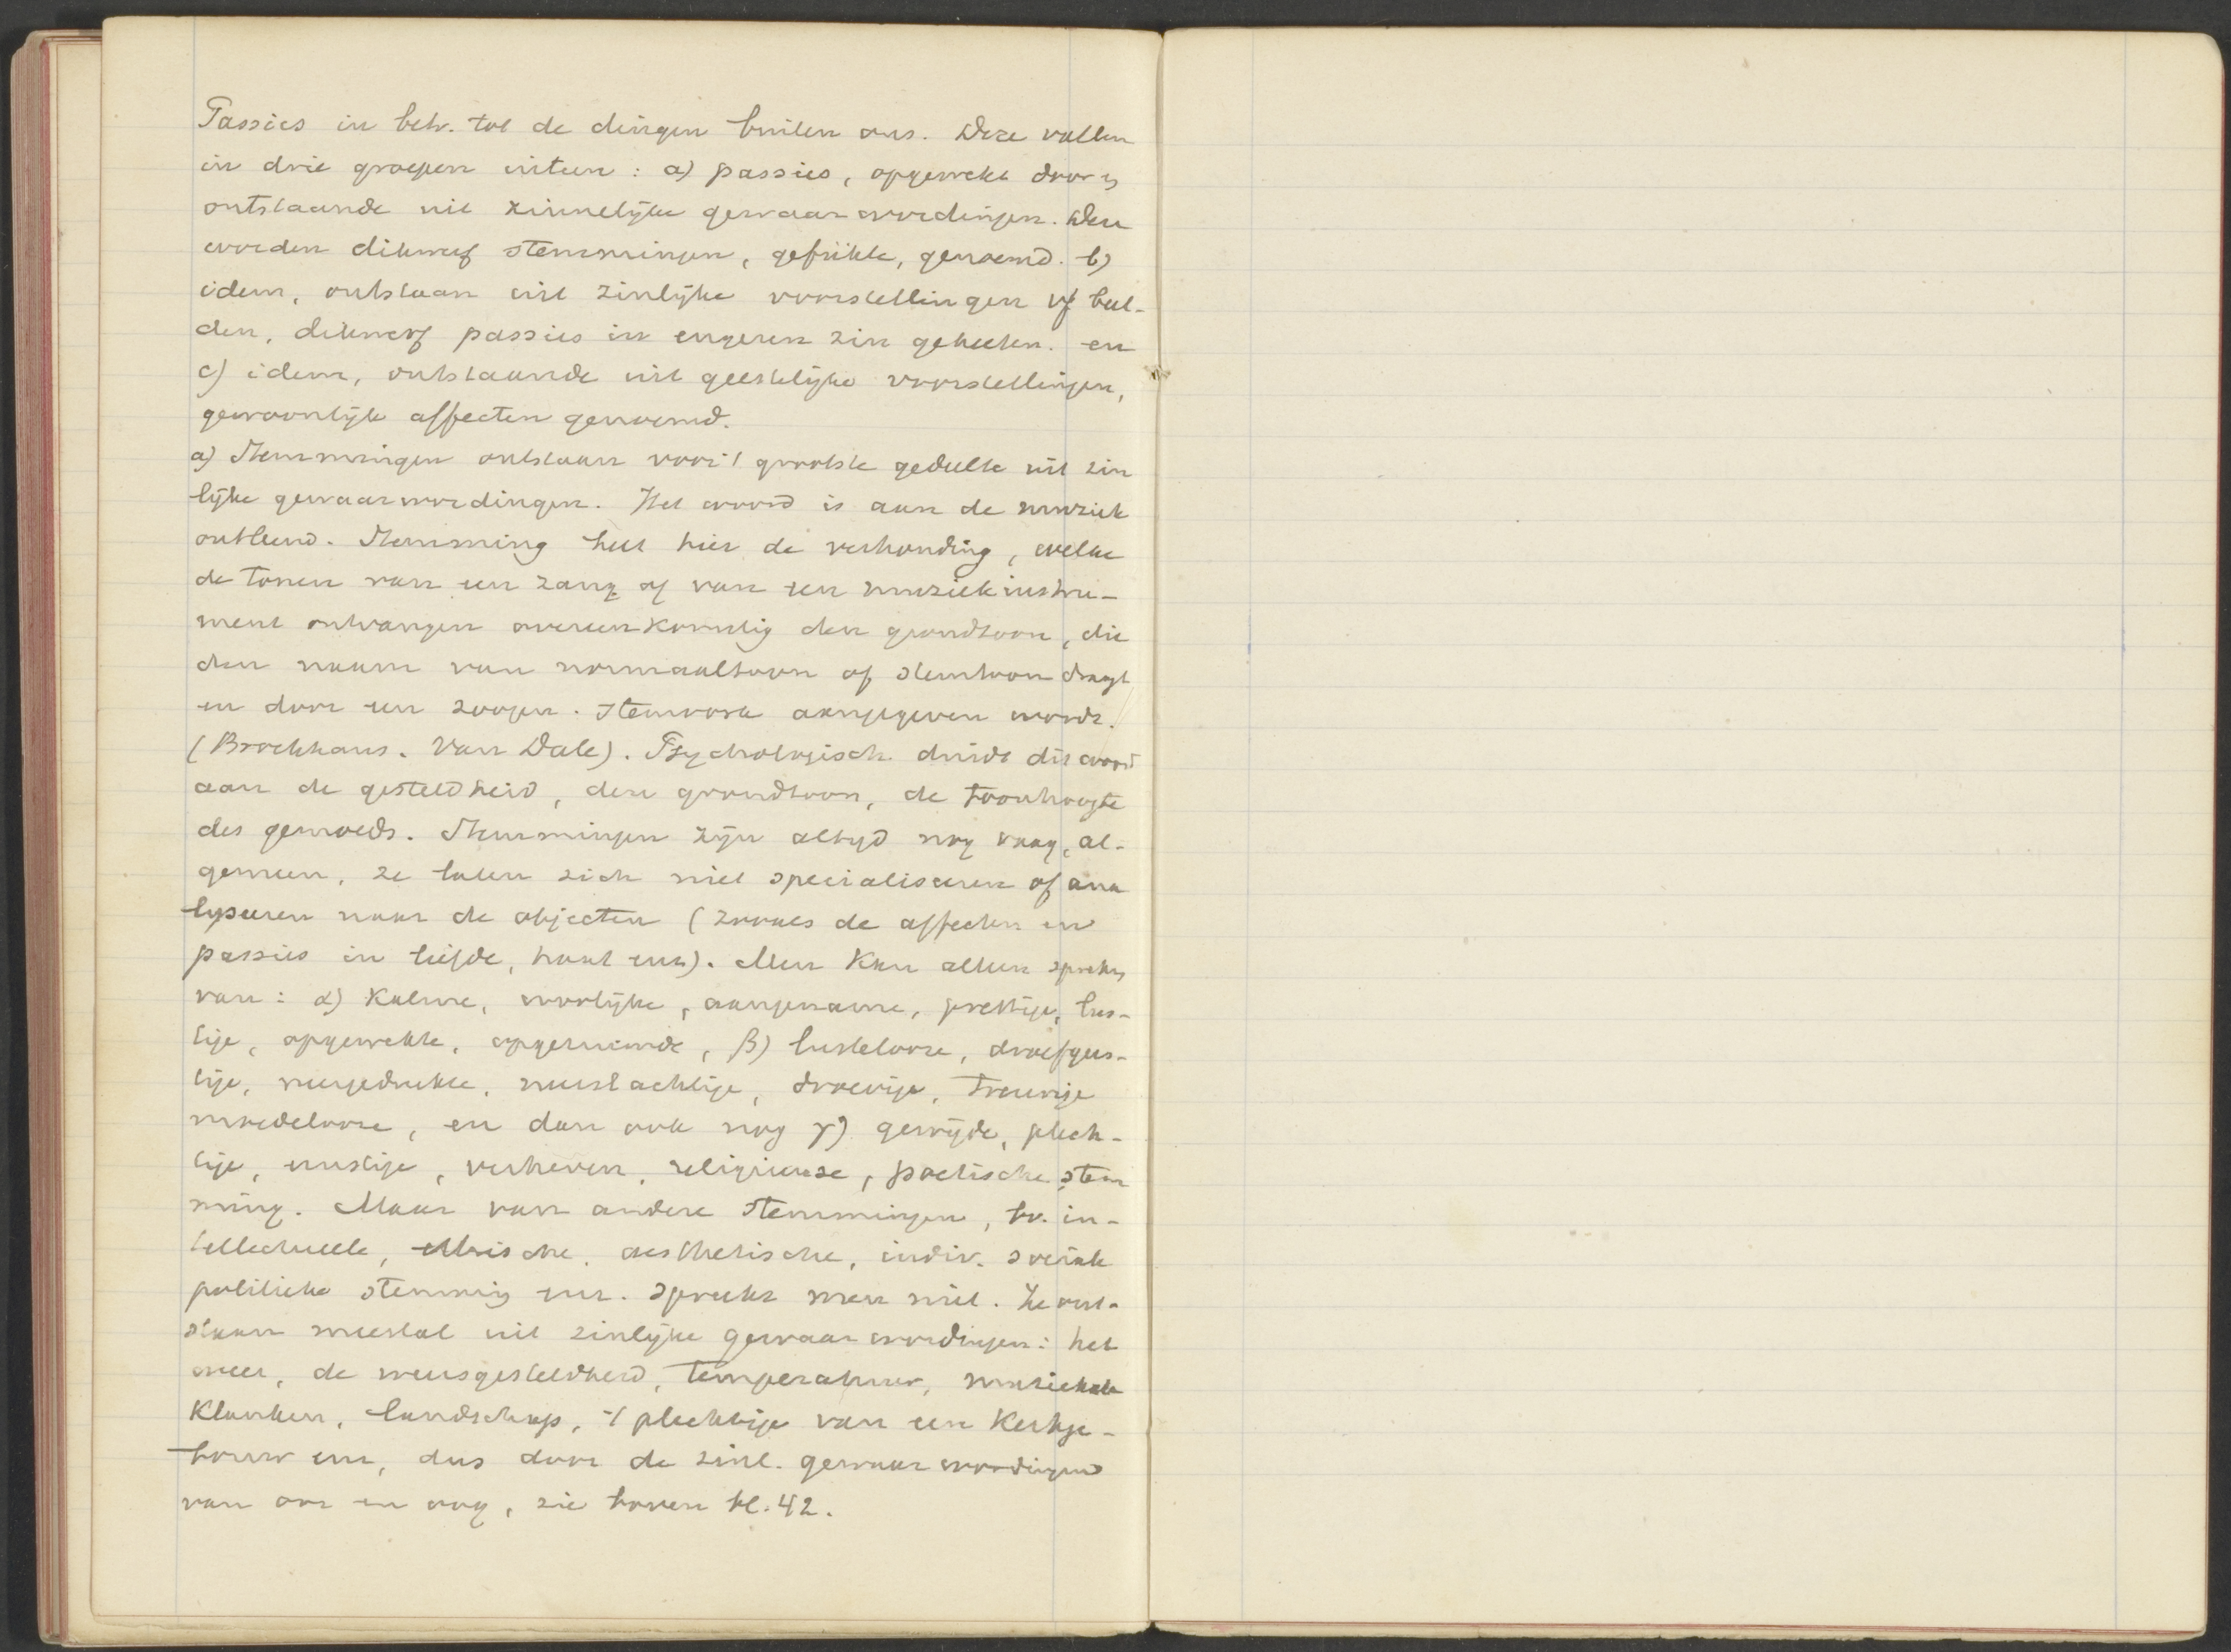 Passies in betr. tot de dingen buiten ons. Deze vallen
in drie groepen uiteen: a) passies, opgewekt door en
ontstaande uit zinnelijke gewaarwordingen. Deze
worden dikwerf stemmingen, gefühle, genoemd. b)
idem, ontstaan uit zinlijke voorstellingen of beel-
den, dikwerf passies in engeren zin geheeten. en
c) idem, ontstaande uit geestelijke voorstellingen,
gewoonlijk affecten genoemd.
a) Stemmingen ontstaan voor 't grootste gedeelte uit zin
lijke gewaarwordingen. Het woord is aan de muziek
ontleend. Stemming heet hier de verhouding, welke
de tonen van een zang of van een muziekinstru-
ment ontvangen overeenkomstig den grondtoon, die
den naam van normaaltoon of stemtoon draagt
en door een zoogen. stemvork aangegeven wordt.
(Brockhaus. Van Dale). Psychologisch duidt dit woord
aan de gesteldheid, den grondtoon, de toonhoogte
des gemoeds. Stemmingen zijn altijd nog vaag, al-
gemeen, ze laten zich niet specialiseeren of ana
lyseeren naar de objecten (zooals de affecten en
passies in liefde, haat enz). Men kan alleen spreken
van: α) kalme, vroolijke, aangename, prettige, lus-
tige, opgewekte, opgeruimde, β) lustelooze, droefgees-
tige, neergedrukte, neerslachtige, droevige, treurige
moedelooze, en dan ook nog γ) gewijde, plech-
tige, ernstige, verheven, religieuse, poetische stem
ming. Maar van andere stemmingen, bv. in-
tellectueele, ethische, aesthetische, indiv. sociale
politieke stemming enz. spreekt men niet. Ze ont-
staan meestal uit zinlijke gewaarwordingen: het
weer, de weersgesteldheid, temperatuur, muzikale
klanken, landschap, 't plechtige van een kerkge-
bouw enz, dus door de zinl. gewaarwordingen
van oor en oog, zie boven bl. 42.